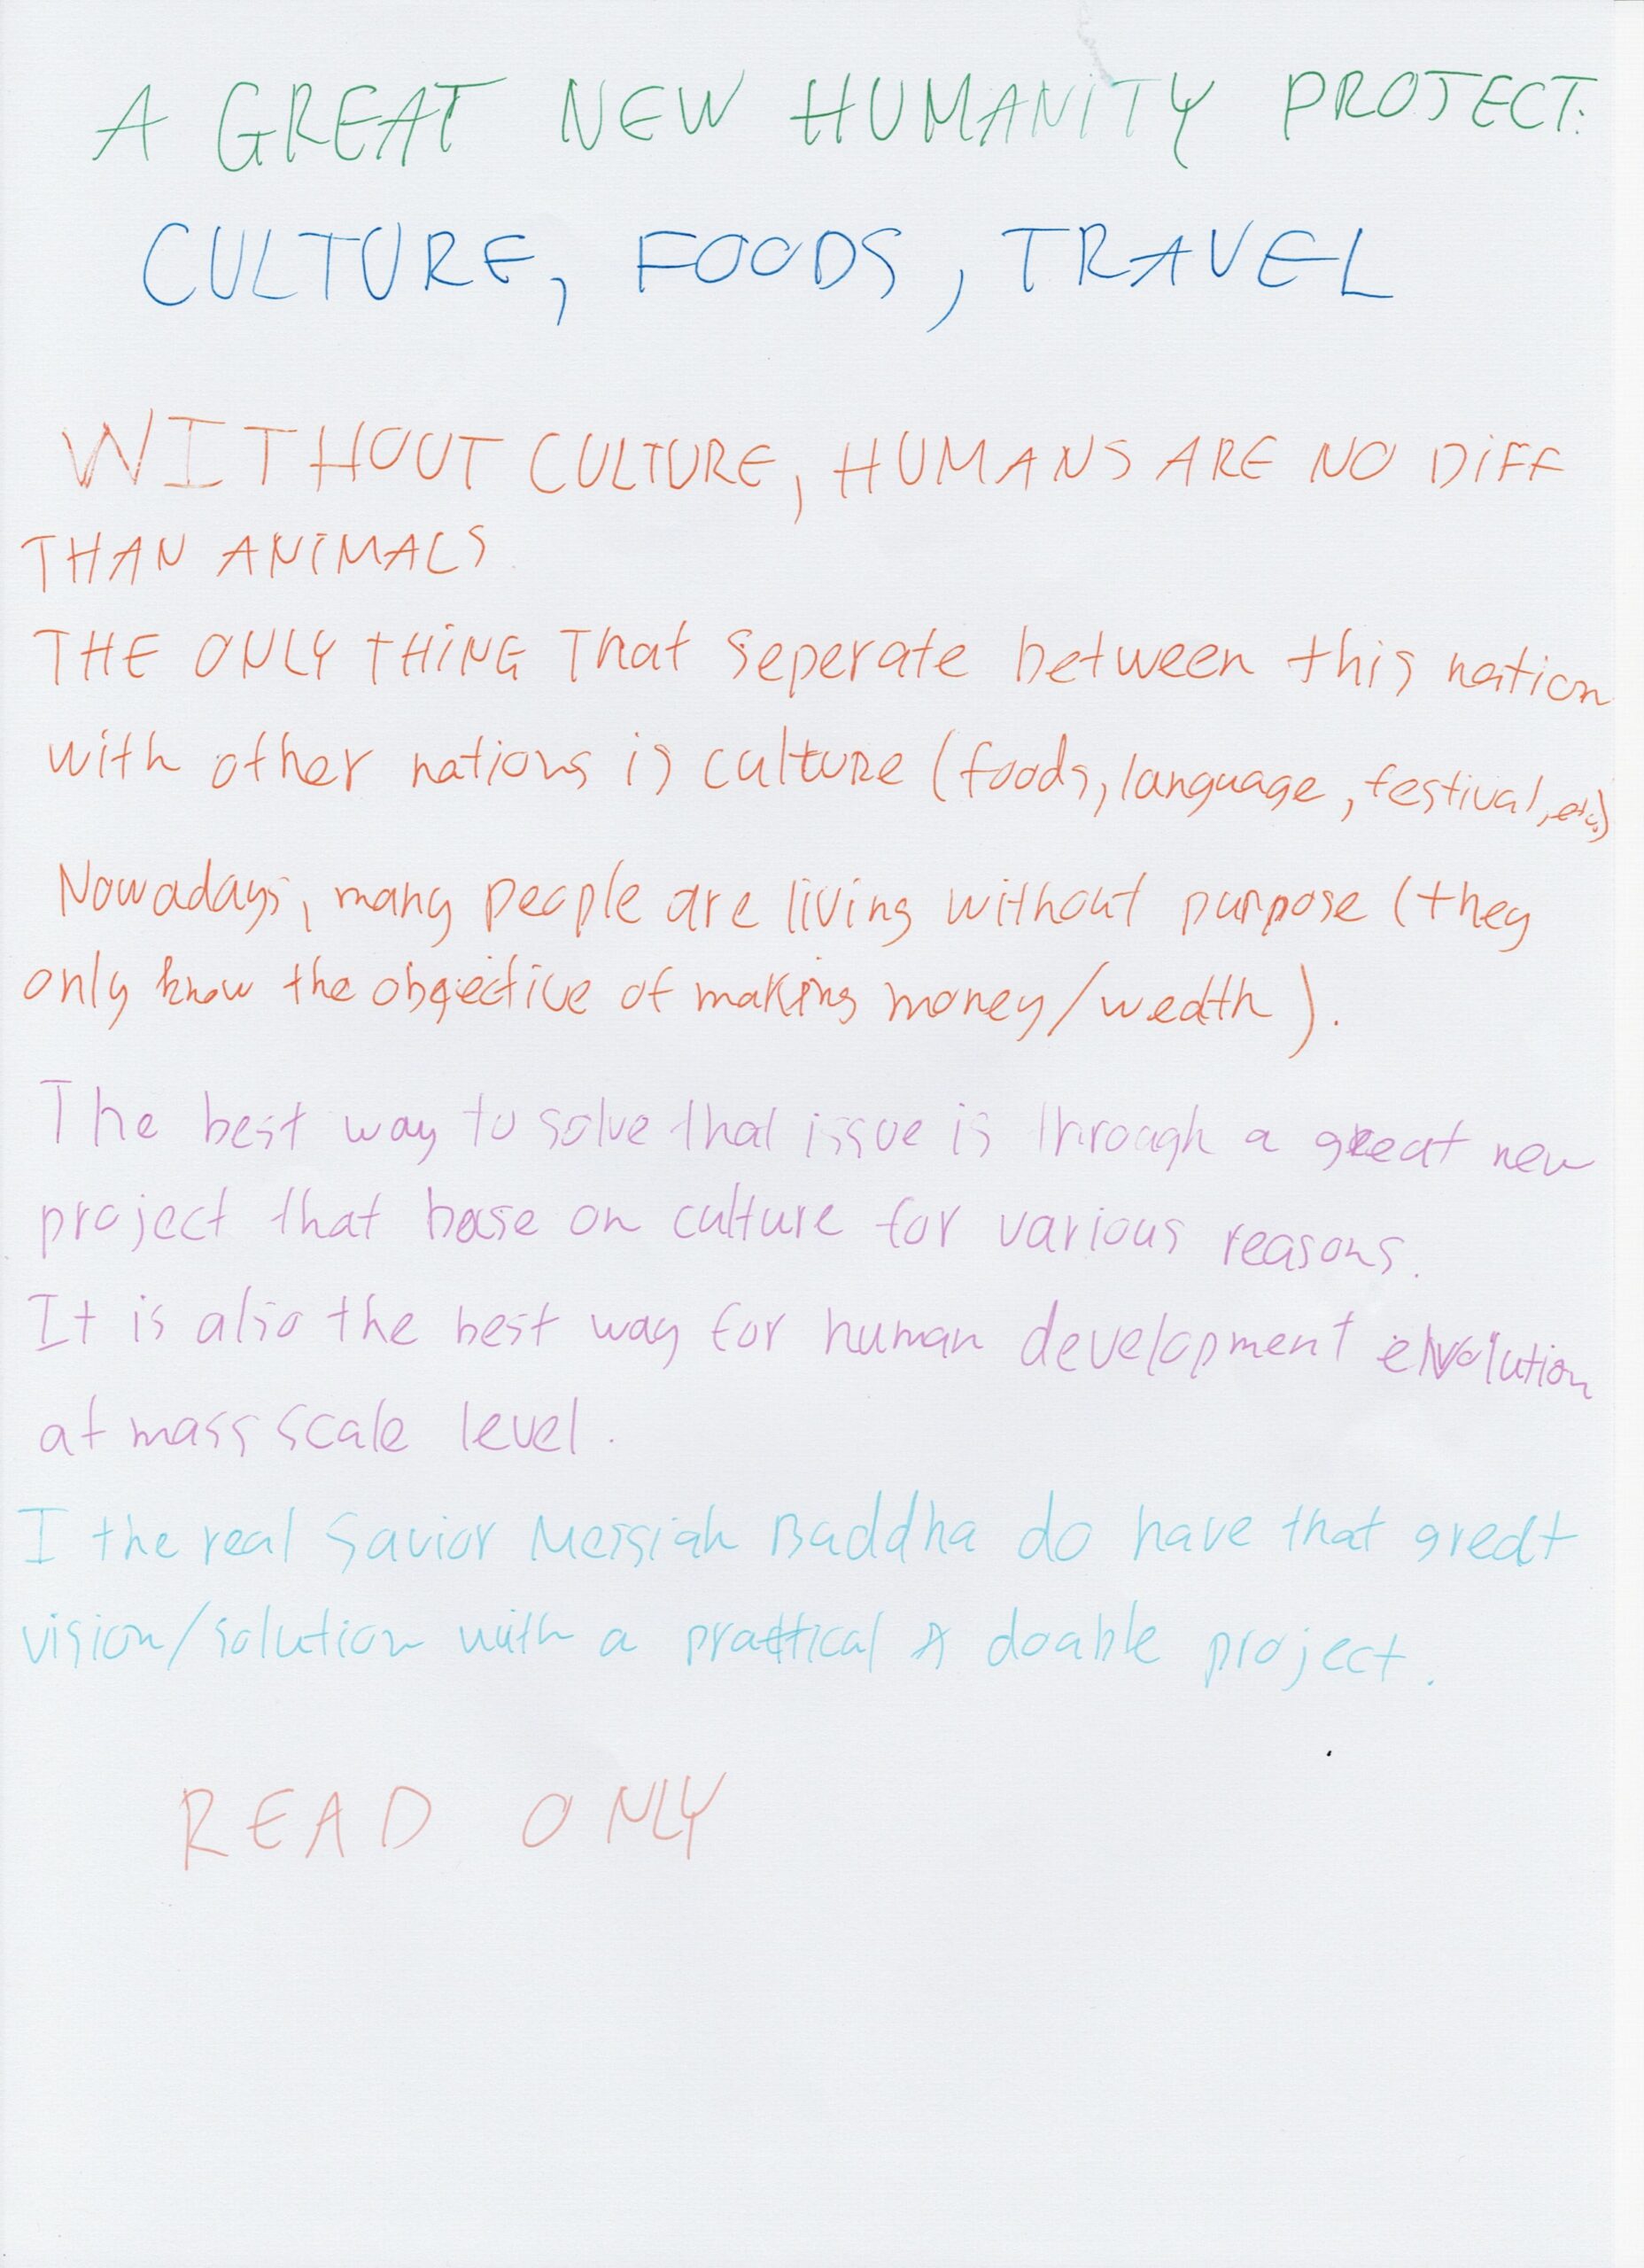 A GREAT NEW HUMANITY PROJECT:
CULTURE, FOODS, TRAVEL
WITHOUT CULTURE, HUMANS ARE NO DIFF
THAN ANIMALS
THE ONLY THING That seperate between this nation
with other nations is culture (foods, language, festival, etc)
Nowadays, many people are living without purpose (they
only know the objective of making money/wealth).
The best way to solve that issue is through a great new
project that base on culture for various reasons.
It is also the best way for human development evolution
at mass scale level.
I the real Savior Messiah Buddha do have that great
vision/solution with a practical & doable project.
READ ONLY